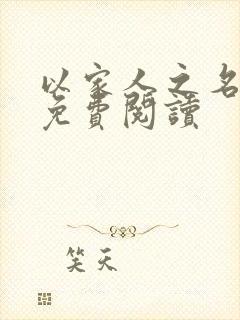 以家人之名
免費閱讀
笑天